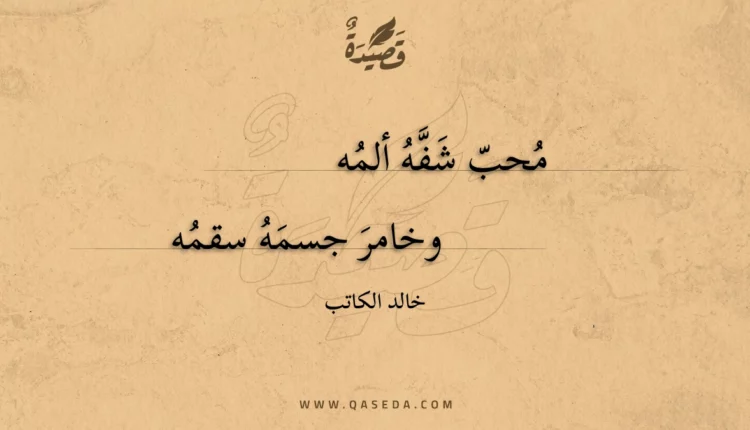 قَصِيْدَةٌ
مُحبّ شَفَّهُ ألمُه
وخامرَ جسمَهُ سقمُه
خالد الكاتب
WWW.QASEDA.COM